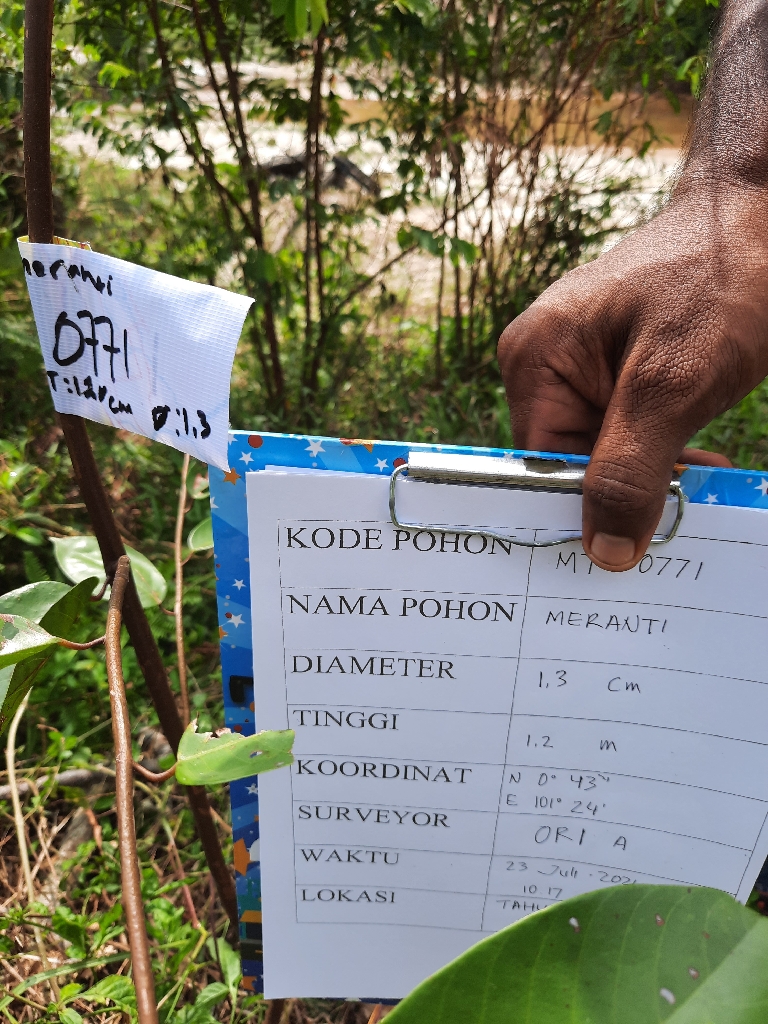 meranti
0771
T:120cm Ø:1.3
KODE POHON 0771
NAMA POHON MERANTI
DIAMETER 1,3 cm
TINGGI 1.2 m
KOORDINAT N 0° 43'
E 101° 24'
SURVEYOR ORI A
WAKTU 23 Juli
10 17
LOKASI